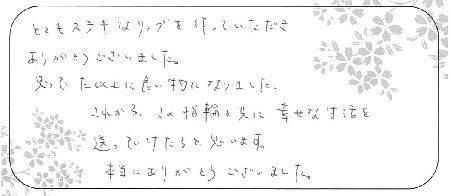 とてもステキなリングを作っていただき
ありがとうございました。
思ってた以上に良い物になりました。
これから、この指輪と共に幸せな生活を
送っていけたらと思います。
本当にありがとうございました。